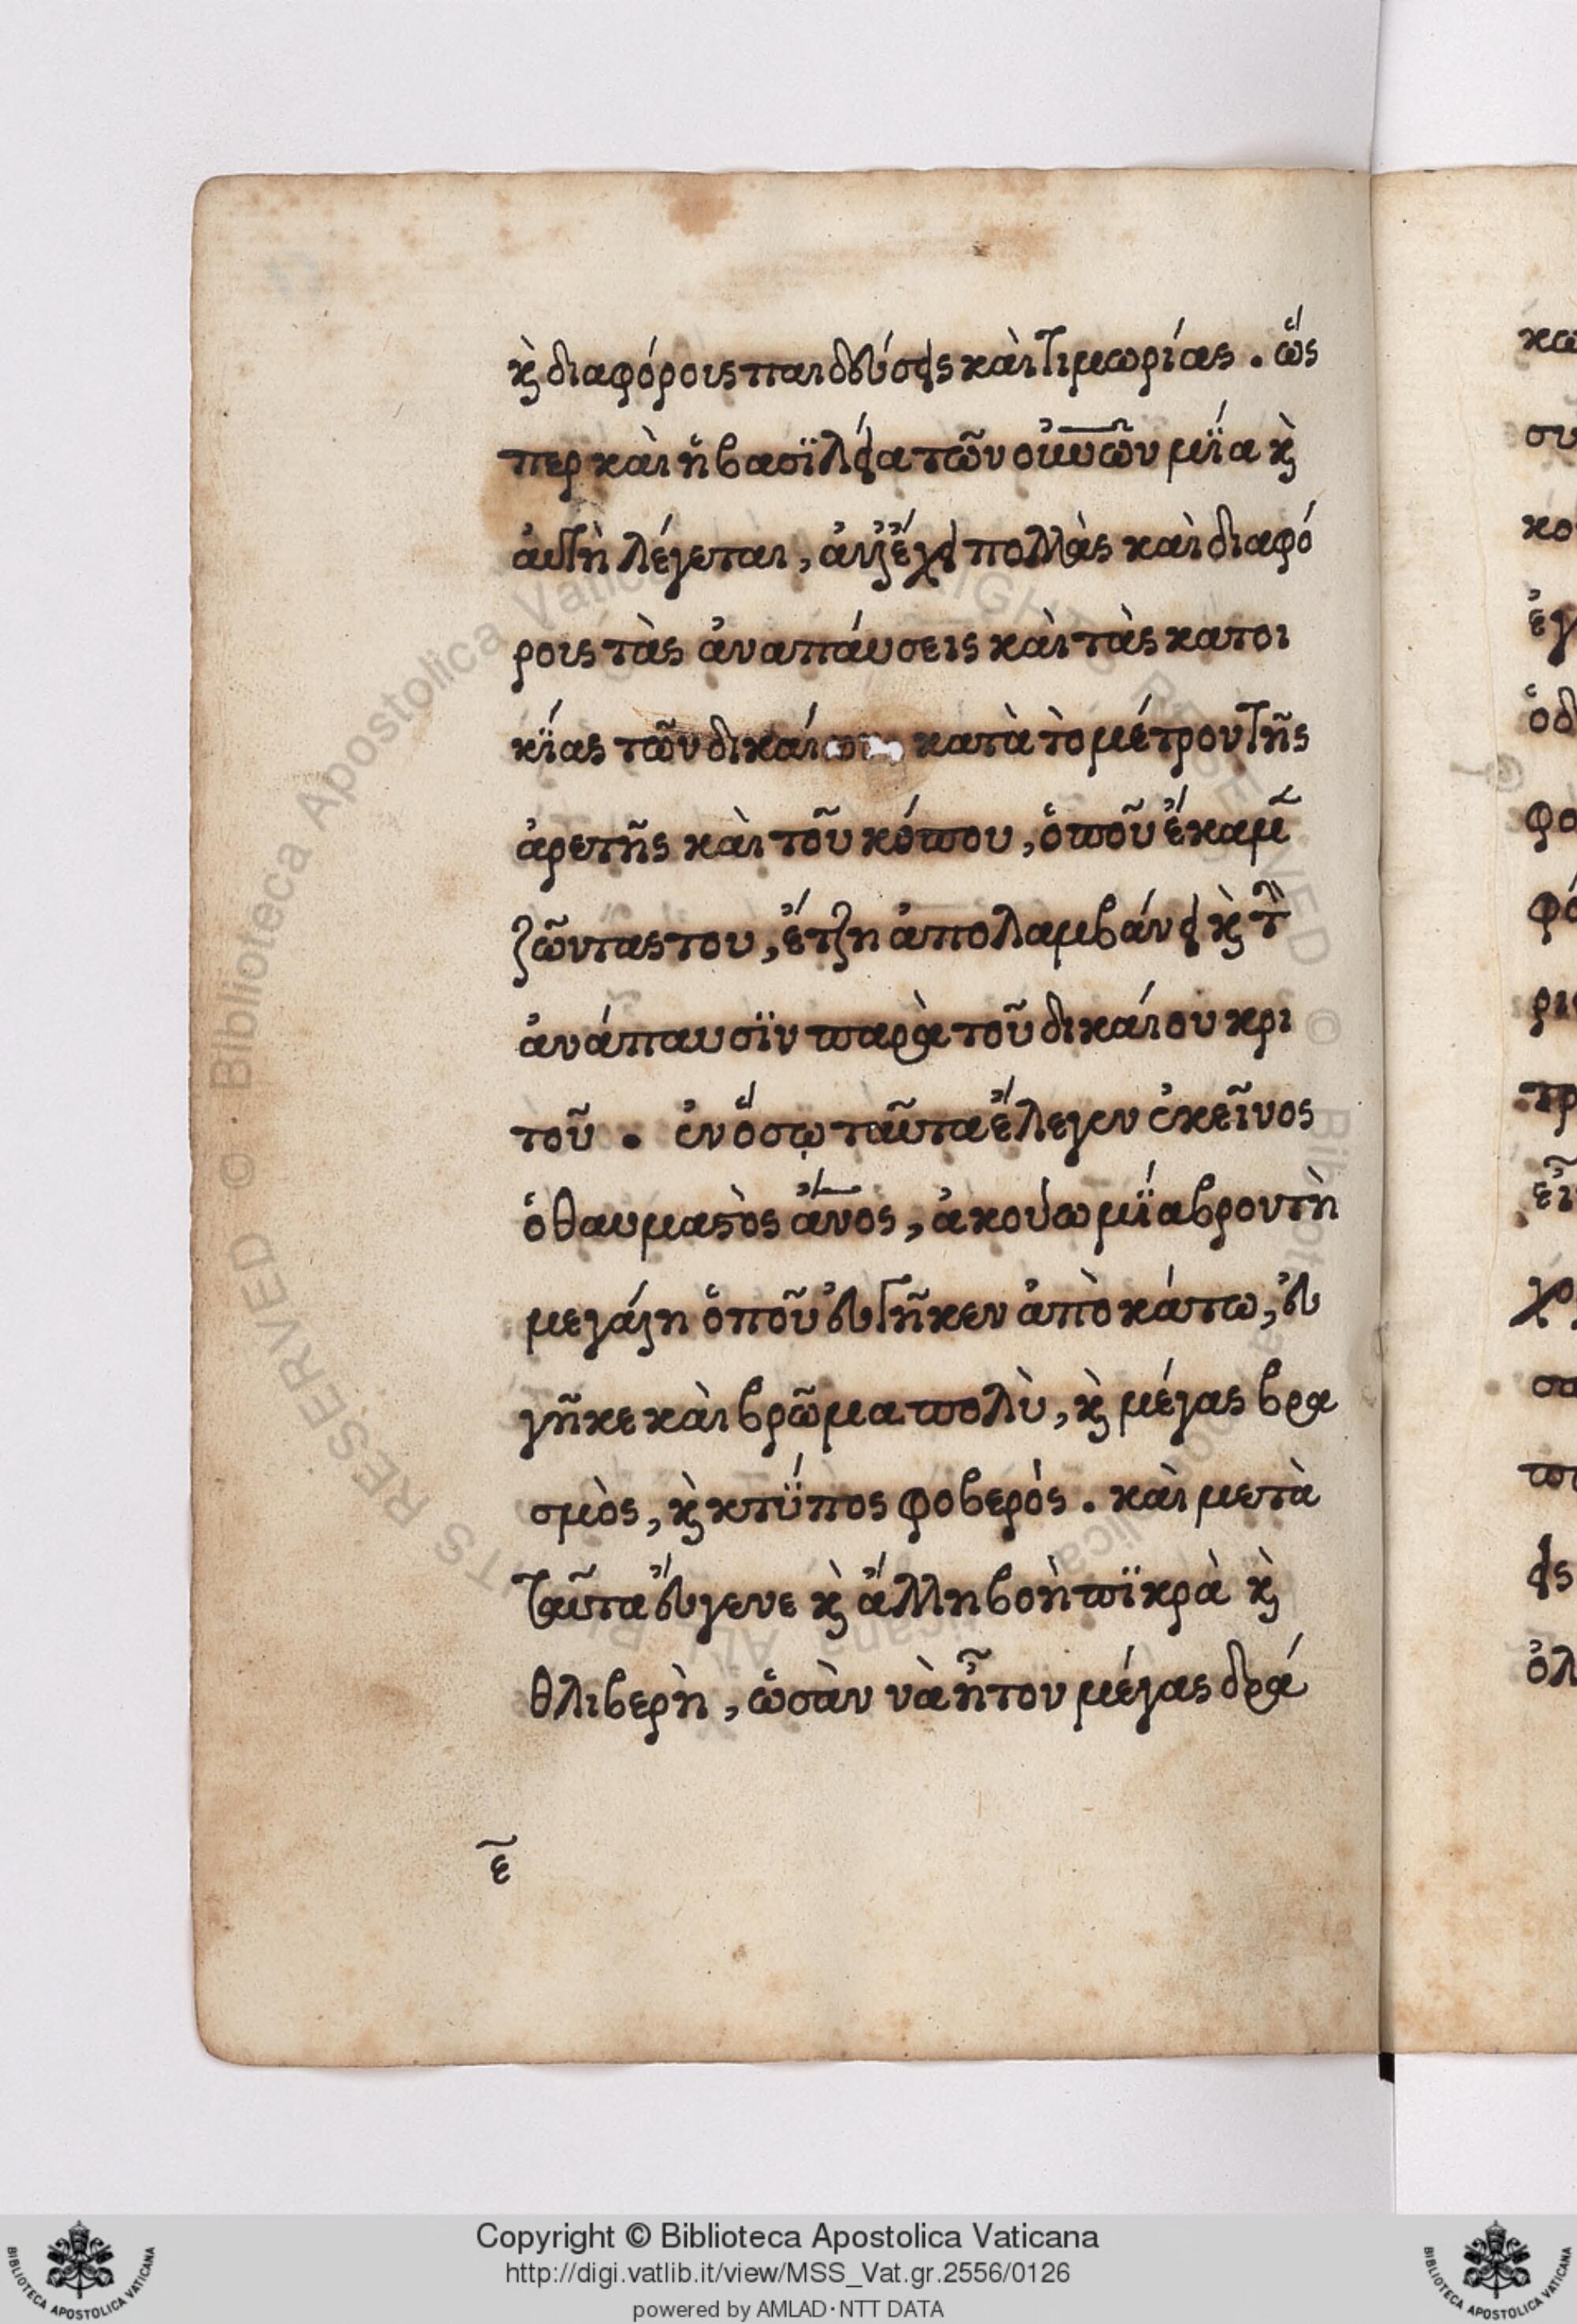 κ̀ διαφόροις παιδεύσεις καὶ τιμωρίας. ὥς
περ καὶ ἡ βασϊλεία τῶν οὐνῶν μΐα κ̀
ἀυτὴ λέγεται, ἀμὴ ἔχει πολλὰς καὶ διαφό
ροις τὰς ἀναπάυσεις καὶ τὰς κατοι
κΐας τῶν δικάιων κατὰ τὸ μέτρον τῆς
ἀρετῆς καὶ τοῦ κόπου, ὁποῦ ἔκαμε
ζῶντας του, ἔτζη ἀπολαμβάνει κ̀ τὴν
ἀνάπαυσϊν παρὰ τοῦ δικάιου κρι
τοῦ. ἐν ὅσῳ ταῦτα ἔλεγεν ἐκεῖνος
ὁ θαυμαστὸς ἄνος, ἀκούω μΐα βροντὴ
μεγάλη ὁποῦ εὐγῆκεν ἀπὸ κάτω, εὐ
γῆκε καὶ βρῶμα πολὺ, κ̀ μέγας βρα
σμὸς, κ̀ κτΰπος φοβερός. καὶ μετὰ
ταῦτα εὔγενε κ̀ ἄλλη βοὴ πϊκρὰ κ̀
θλιβερὴ, ὡσὰν νὰ ἦτον μέγας δρά
ε̃
Copyright © Biblioteca Apostolica Vaticana
http://digi.vatlib.it/view/MSS_Vat.gr.2556/0126
powered by AMLAD·NTT DATA